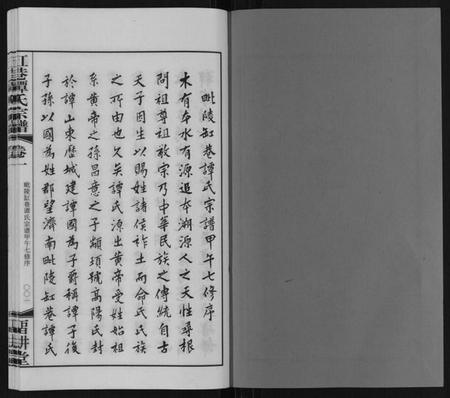 毗陵缸巷譚氏宗譜甲午七修序
木有本水有源追本溯源人之天性尋根
問祖尊祖敬宗乃中華民族之傳統自古
天子因生以賜姓諸侯祚土而命氏氏族
之所由也久矣譚氏源出黄帝受姓始祖
系黄帝之孫昌意之子顓頊號高陽氏封
於譚山東歷城建譚國為子爵稱譚子後
子孫以國為姓郡望濟南毗陵缸巷譚氏
缸巷譚氏宗譜
卷一
毗陵缸巷譚氏宗譜甲午七修序
〇〇一